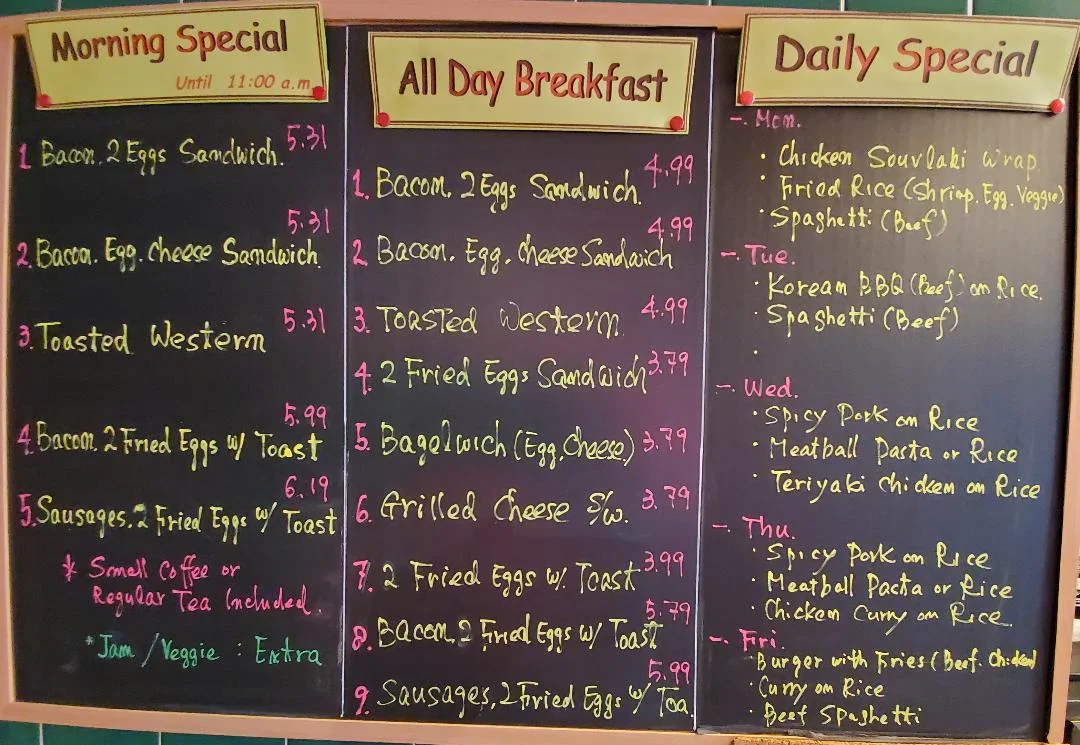 Morning Special
Until 11:00 a.m
5.31
1. Bacon. 2 Eggs Sandwich.
5.31
2. Bacon. Egg. Cheese Sandwich.
5.31
3. Toasted Western
5.99
4. Bacon. 2 Fried Eggs w/ Toast
6.19
5. Sausages. 2 Fried Eggs w/ Toast
* Small Coffee or
Regular Tea Included.
* Jam / Veggie : Extra
All Day Breakfast
4.99
1. Bacon. 2 Eggs Sandwich.
4.99
2. Bacon. Egg. Cheese Sandwich
3. Toasted Western. 4.99
4. 2 Fried Eggs Sandwich 3.79
5. Bagelwich (Egg. Cheese) 3.79
6. Grilled Cheese S/w. 3.79
7. 2 Fried Eggs w/. Toast 3.99
5.79
8. Bacon. 2 Fried Eggs w/ Toast
5.99
9. Sausages. 2 Fried Eggs w/ Toa
Daily Special
-. Mon.
· Chicken Souvlaki Wrap.
· Fried Rice (Shrimp. Egg. Veggie)
· Spaghetti (Beef)
-. Tue.
· Korean BBQ (Beef) on Rice.
· Spaghetti (Beef)
·
-. Wed.
· Spicy Pork on Rice
· Meatball Pasta or Rice
· Teriyaki Chicken on Rice
-. Thu.
· Spicy Pork on Rice
· Meatball Pasta or Rice
· Chicken Curry on Rice.
-. Fri.
· Burger with Fries (Beef. Chicken)
· Curry on Rice
· Beef Spaghetti